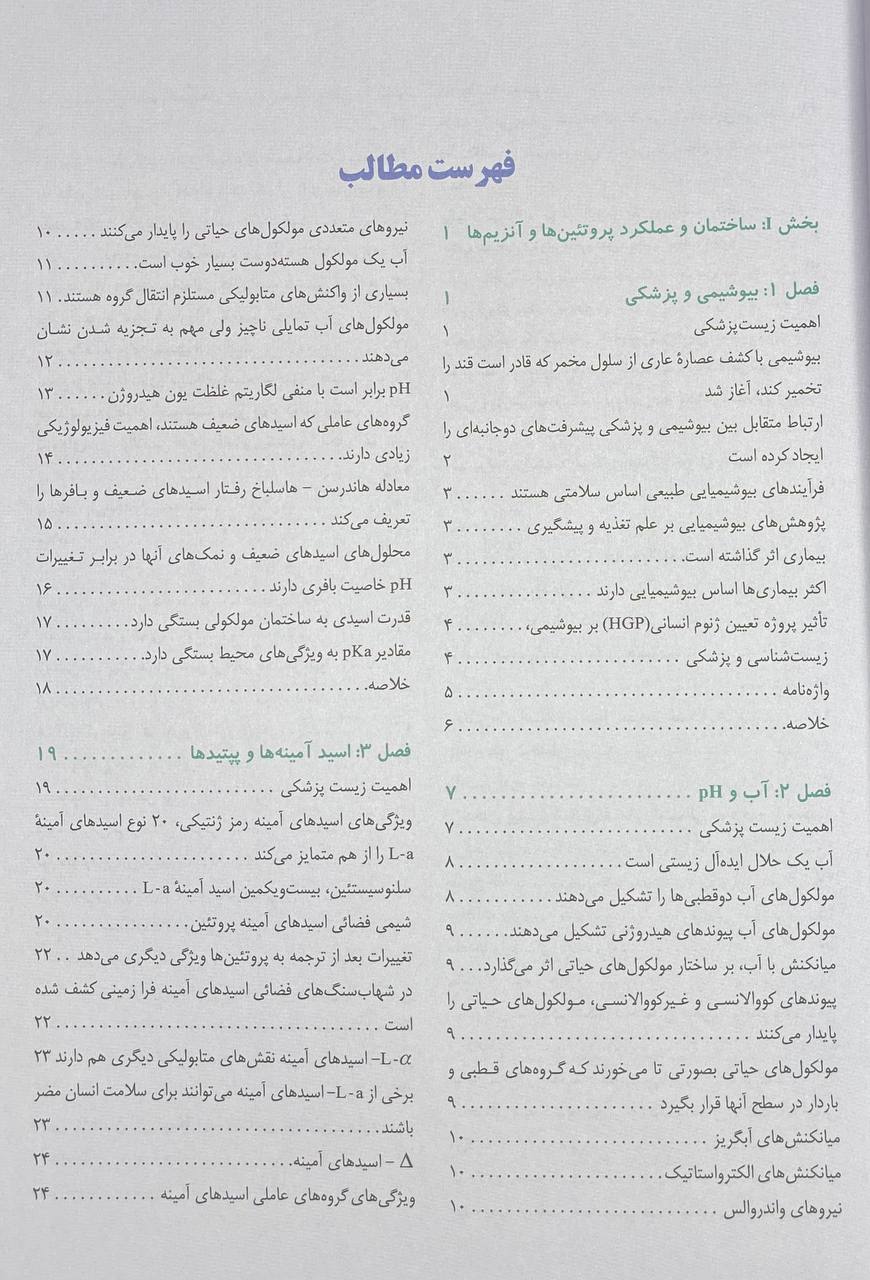 فهرست مطالب
بخش I: ساختمان و عملکرد پروتئین‌ها و آنزیم‌ها ۱
فصل ۱: بیوشیمی و پزشکی ۱
اهمیت زیست‌پزشکی ۱
بیوشیمی با کشف عصارهٔ عاری از سلول مخمر که قادر است قند را
تخمیر کند، آغاز شد ۱
ارتباط متقابل بین بیوشیمی و پزشکی پیشرفت‌های دوجانبه‌ای را
ایجاد کرده است ۲
فرآیندهای بیوشیمیایی طبیعی اساس سلامتی هستند ...... ۳
پژوهش‌های بیوشیمیایی بر علم تغذیه و پیشگیری ........ ۳
بیماری اثر گذاشته است............................ ۳
اکثر بیماری‌ها اساس بیوشیمیایی دارند ................ ۳
تأثیر پروژه تعیین ژنوم انسانی(HGP) بر بیوشیمی،........ ۴
زیست‌شناسی و پزشکی ........................... ۴
واژه‌نامه ...................................... ۵
خلاصه....................................... ۶
فصل ۲: آب و pH ........................ ۷
اهمیت زیست پزشکی ............................ ۷
آب یک حلال ایده‌آل زیستی است.................... ۸
مولکول‌های آب دوقطبی‌ها را تشکیل می‌دهند............ ۸
مولکول‌های آب پیوندهای هیدروژنی تشکیل می‌دهند...... ۹
میانکنش با آب، بر ساختار مولکول‌های حیاتی اثر می‌گذارد... ۹
پیوندهای کووالانسی و غیرکووالانسی، مولکول‌های حیاتی را
پایدار می‌کنند ................................... ۹
مولکول‌های حیاتی بصورتی تا می‌خورند که گروه‌های قطبی و
باردار در سطح آنها قرار بگیرد ....................... ۹
میانکنش‌های آبگریز ............................. ۱۰
میانکنش‌های الکترواستاتیک........................ ۱۰
نیروهای واندروالس .............................. ۱۰
نیروهای متعددی مولکول‌های حیاتی را پایدار می‌کنند ..... ۱۰
آب یک مولکول هسته‌دوست بسیار خوب است.......... ۱۱
بسیاری از واکنش‌های متابولیکی مستلزم انتقال گروه هستند. ۱۱
مولکول‌های آب تمایلی ناچیز ولی مهم به تجزیه شدن نشان
می‌دهند ..................................... ۱۲
pH برابر است با منفی لگاریتم غلظت یون هیدروژن...... ۱۳
گروه‌های عاملی که اسیدهای ضعیف هستند، اهمیت فیزیولوژیکی
زیادی دارند.................................. ۱۴
معادله هاندرسن – هاسلباخ رفتار اسیدهای ضعیف و بافرها را
تعریف می‌کند ................................ ۱۵
محلول‌های اسیدهای ضعیف و نمک‌های آنها در برابر تغییرات
pH خاصیت بافری دارند ......................... ۱۶
قدرت اسیدی به ساختمان مولکولی بستگی دارد.......... ۱۷
مقادیر pKa به ویژگی‌های محیط بستگی دارد........... ۱۷
خلاصه..................................... ۱۸
فصل ۳: اسید آمینه‌ها و پپتیدها ............. ۱۹
اهمیت زیست پزشکی .......................... ۱۹
ویژگی‌های اسیدهای آمینه رمز ژنتیکی، ۲۰ نوع اسیدهای آمینهٔ
L-a را از هم متمایز می‌کند ....................... ۲۰
سلنوسیستئین، بیست‌ویکمین اسید آمینهٔ L-a .......... ۲۰
شیمی فضائی اسیدهای آمینه پروتئین................. ۲۰
تغییرات بعد از ترجمه به پروتئین‌ها ویژگی دیگری می‌دهد .. ۲۲
در شهاب‌سنگ‌های فضائی اسیدهای آمینه فرا زمینی کشف شده
است ...................................... ۲۲
L-α– اسیدهای آمینه نقش‌های متابولیکی دیگری هم دارند ۲۳
برخی از L-a–اسیدهای آمینه می‌توانند برای سلامت انسان مضر
باشند...................................... ۲۳
Δ – اسیدهای آمینه............................ ۲۴
ویژگی‌های گروه‌های عاملی اسیدهای آمینه ............ ۲۴